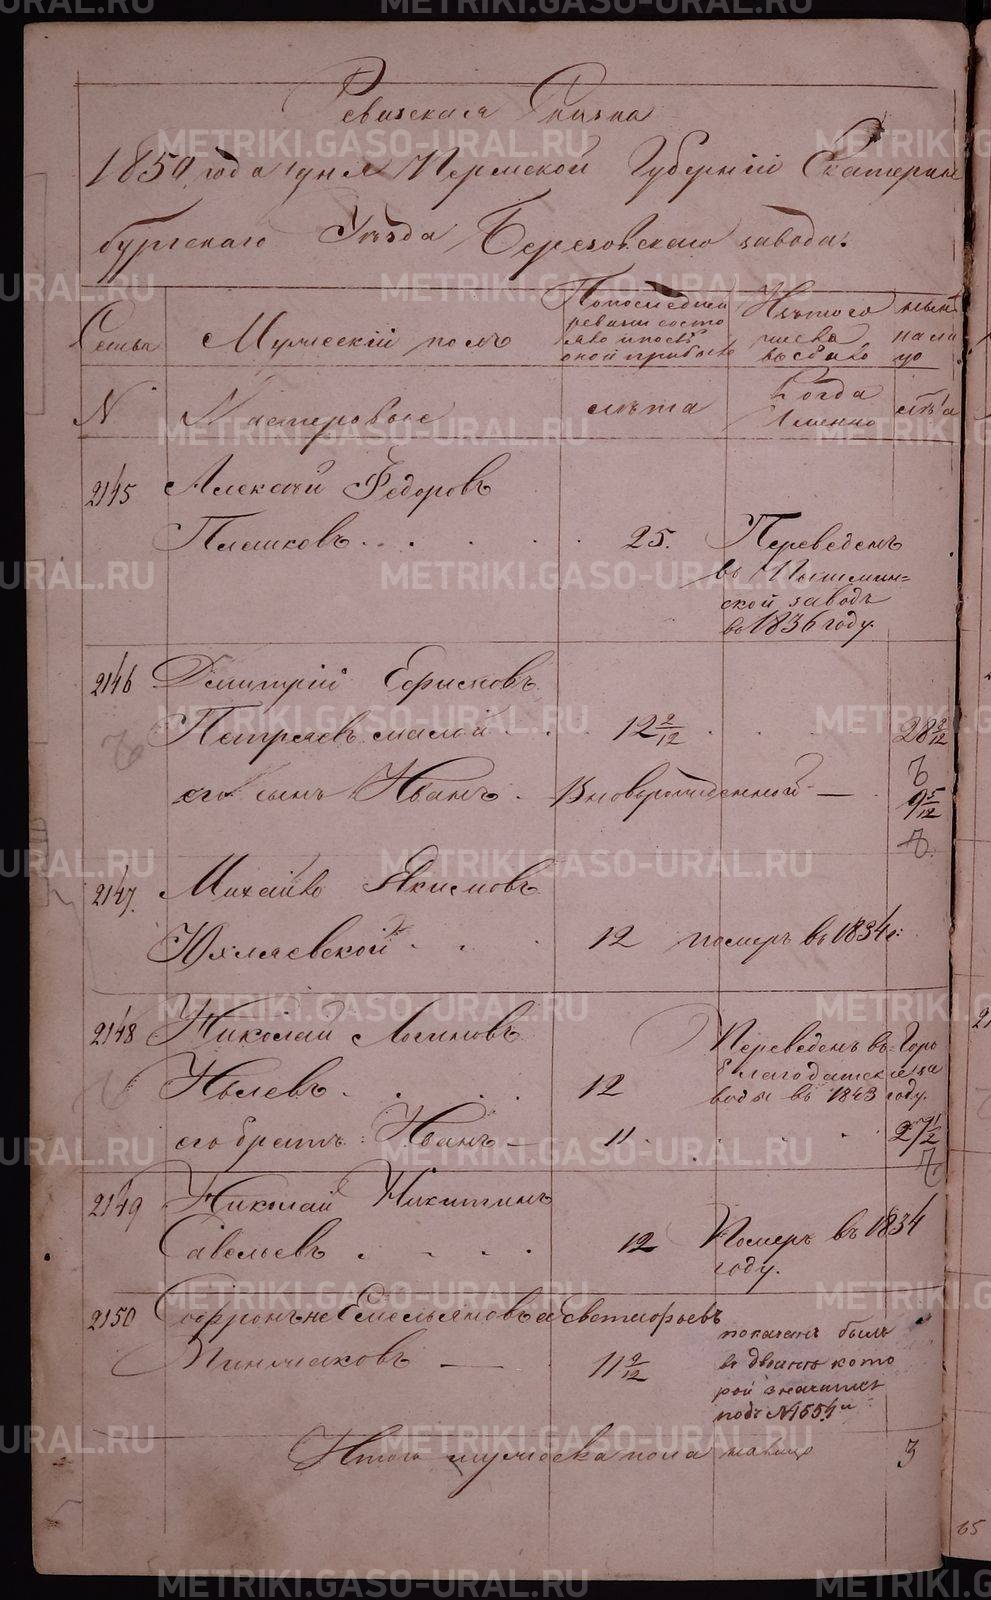 Ревизская Сказка
1850 года Iюня Пермской Губернiи Екатерин
бургскаго Уѣзда Березовскаго завода:
Семьи
Мужескiй полъ
По последней
ревизiи состо
яло и послѣ
оной прибыло
Изъ того
числа
выбыло
нынѣ
на ли
цо
N
Мастеровые
лѣта
Когда
Именно
лѣта
2145 Алексѣй Федоровъ
Плешковъ 25. Переведенъ
въ Пышмин=
ской заводъ
въ 1836 году.
2146 Дмитрiй
Петряевъ малой 12 9/12 28 9/12
его сынъ Иванъ. Вноворожденной — 9 5/12
2147. Михайло Якимовъ
12 померъ въ 1834 г:
2148 Николай Логиновъ
12 Переведенъ въ Горо
благодатскiе за
воды въ 1843 году.
его братъ: Иванъ — 11
2149 Николай Никитинъ
Савельевъ 12 Померъ въ 1834
году.
2150 Софронъ не Емельяновъ а Евстафьевъ
11 9/12 показанъ былъ
кото
рой значится
подъ N 1554м
Итого мужеска пола налицо 3
65
METRIKI.GASO-URAL.RU